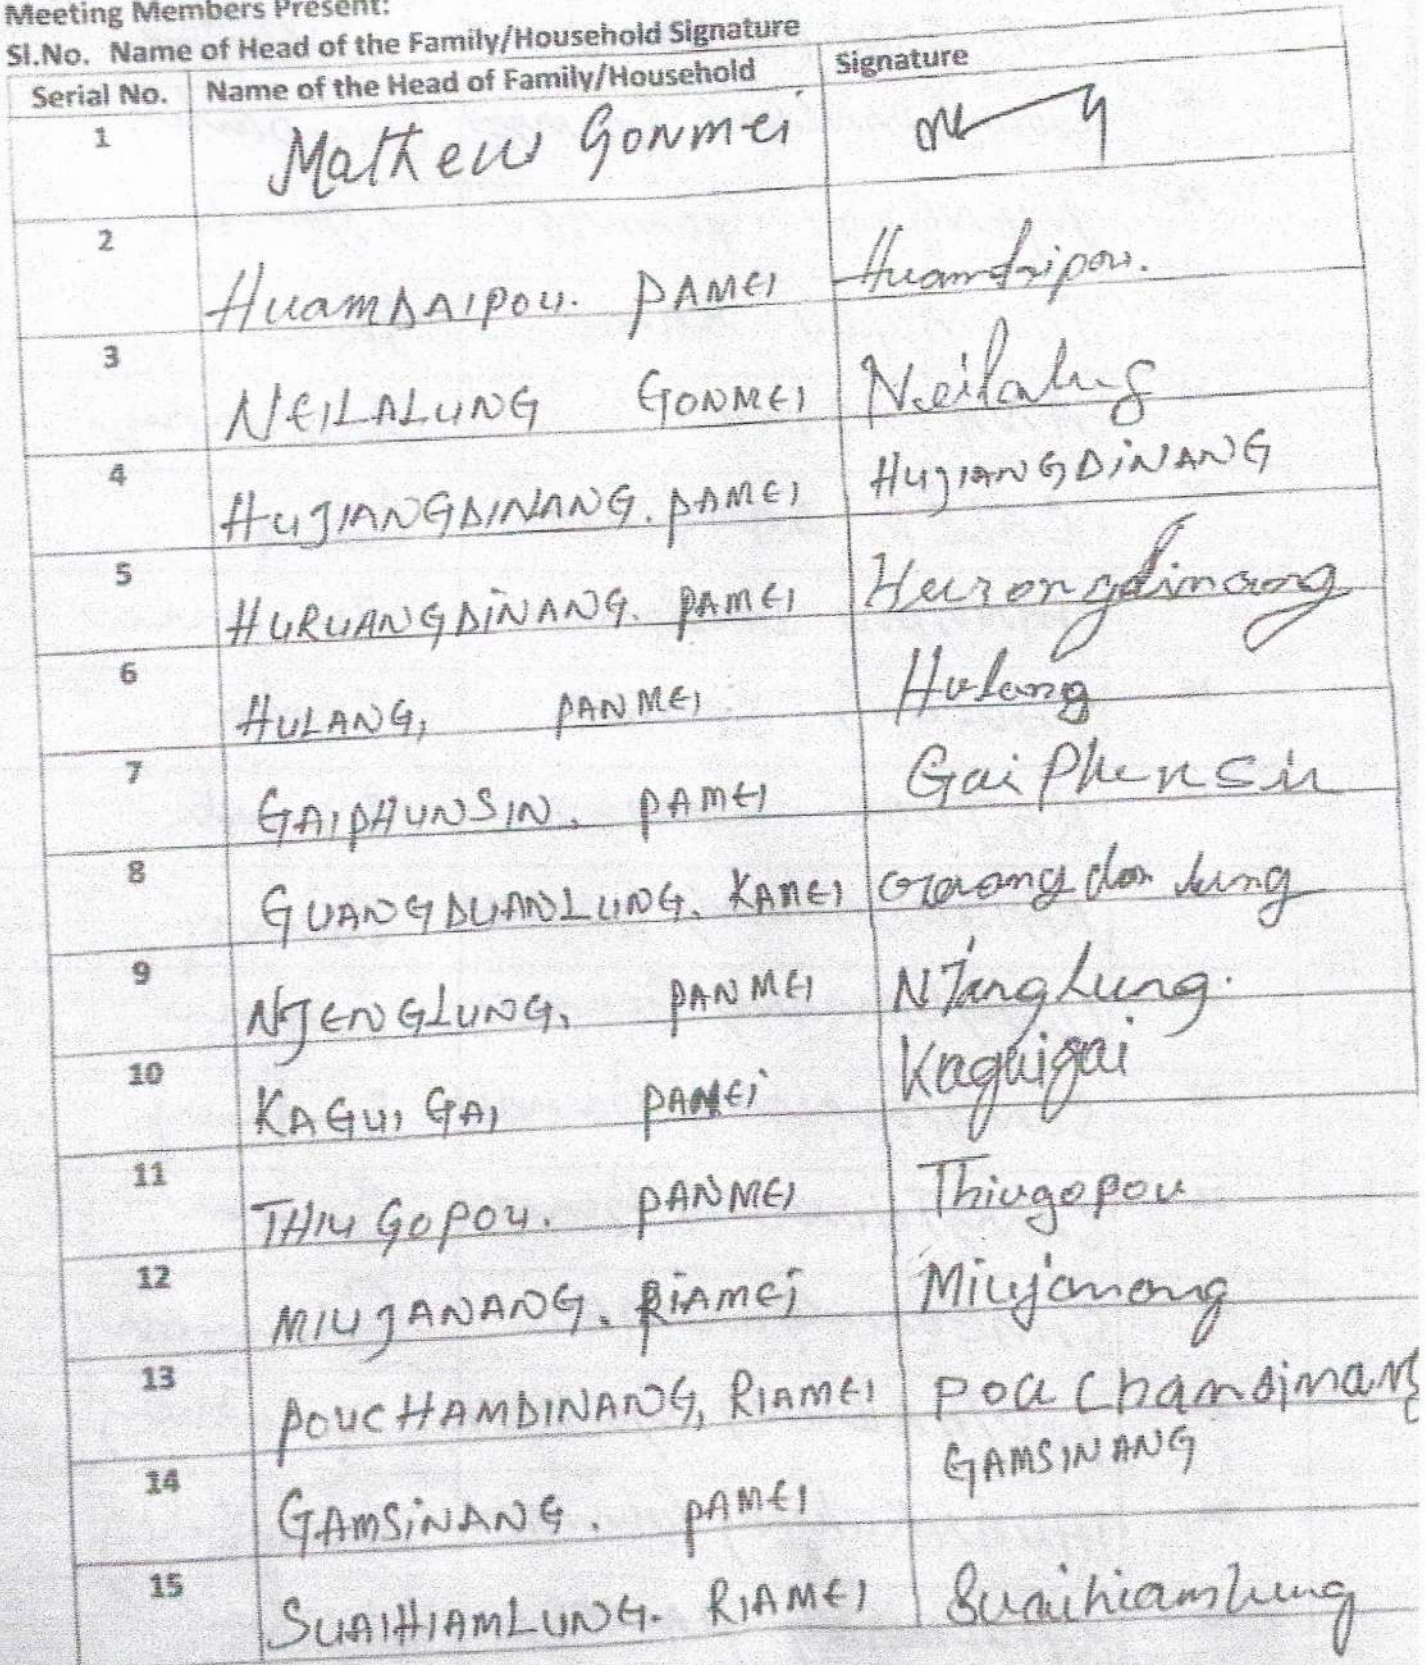 Meeting Members Present:
Sl.No. Name of Head of the Family/Household Signature
Serial No. Name of the Head of Family/Household Signature
1 Mathew Gonmei
2 HuamDAIpou. PAMEI Huamdaipou.
3 NEILALUNG GONMEI Neilalung
4 HUJIANGDINANG. PAMEI HUJIANGDINANG
5 HURUANGDINANG. PAMEI Hurongdinang
6 HULANG, PANMEI Hulang
7 GAIPHUNSIN. PAMEI Gai Phensin
8 GUANGDUANLUNG. KAMEI
9 NJENGLUNG, PANMEI NJanglung.
10 KAGUI GAI PAMEI Kaguigai
11 THIU GOPOU. PANMEI Thiugopou
12 MIUJANANG. RIAMEI Miujanang
13 POUCHAMDINANG, RIAMEI Pou Chamdinang
14 GAMSINANG. PAMEI GAMSINANG
15 SUAIHIAMLUNG. RIAMEI Suaihiamlung